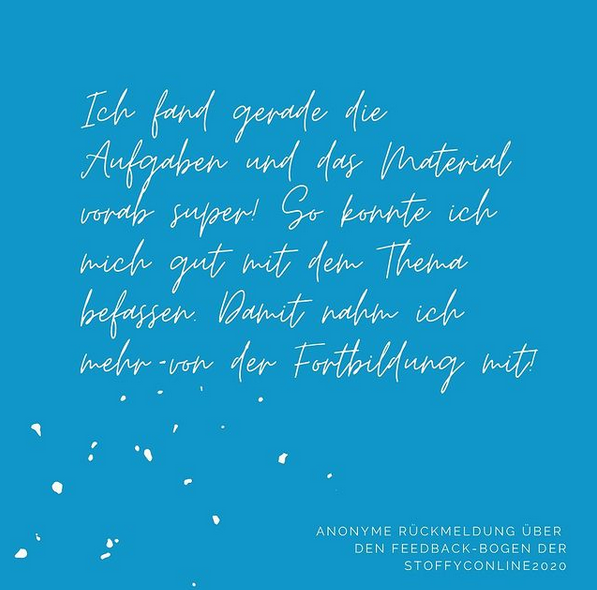 Ich fand gerade die
Aufgaben und das Material
vorab super! So konnte ich
mich gut mit dem Thema
befassen. Damit nahm ich
mehr von der Fortbildung mit!
ANONYME RÜCKMELDUNG ÜBER
DEN FEEDBACK-BOGEN DER
STOFFYCONLINE2020